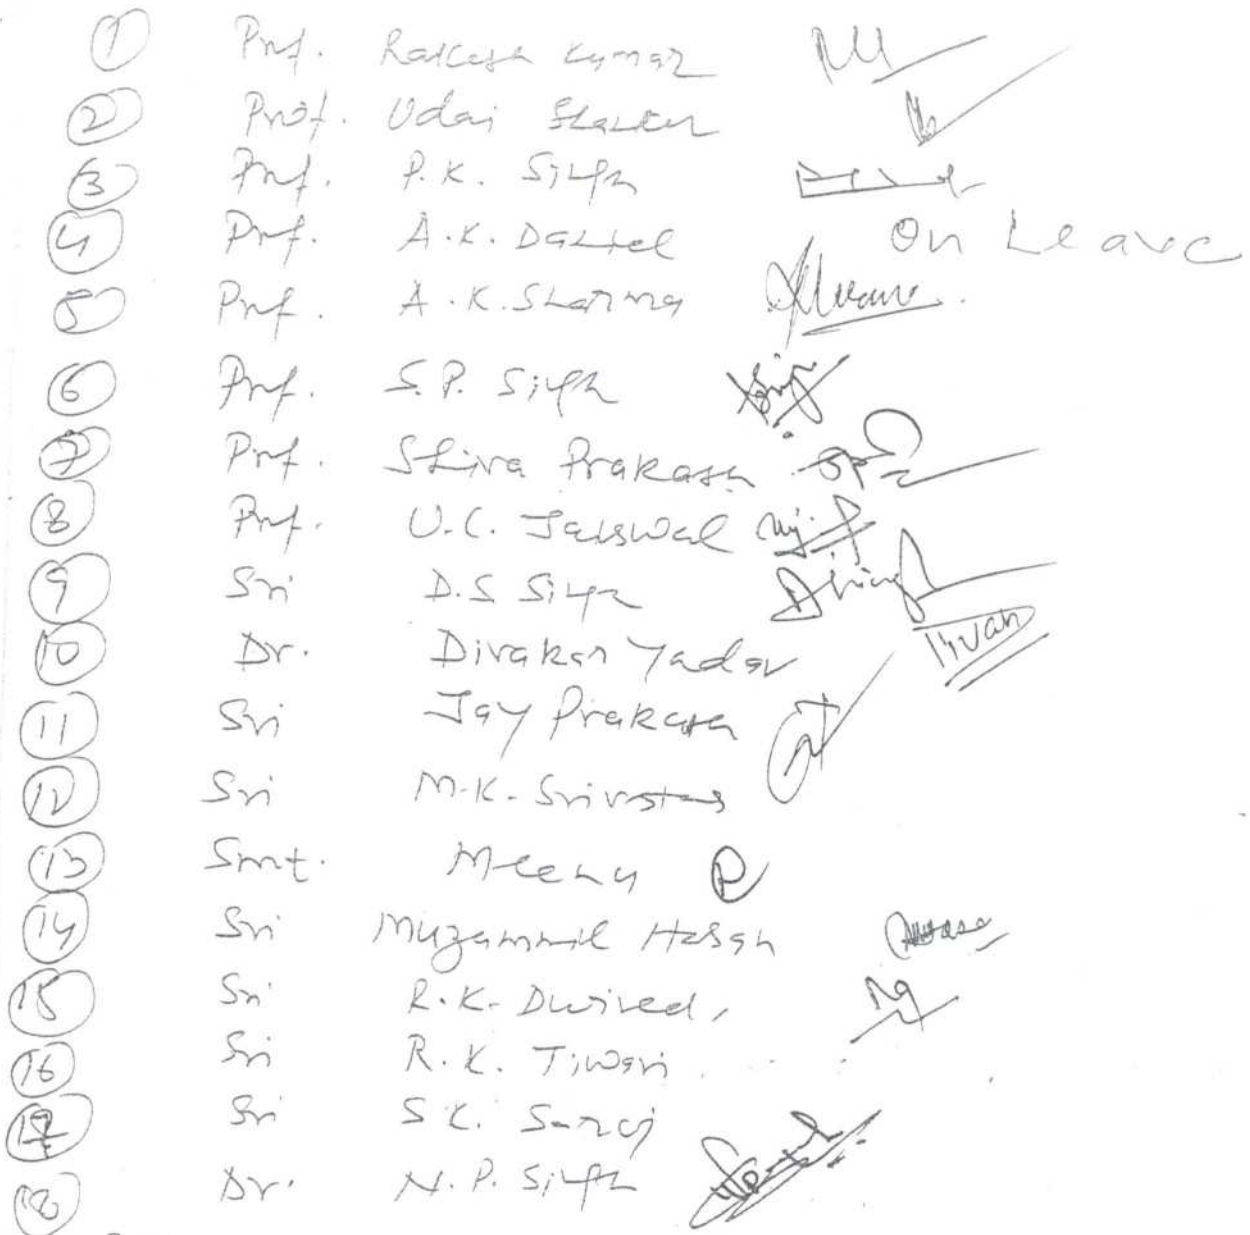 1 Prof. Rakesh Kumar
2 Prof. Udai Shanker
3 Prof. P.K. Singh
4 Prof. A.K. Daniel On Leave
5 Prof. A.K. Sharma
6 Prof. S.P. Singh
7 Prof. Shiva Prakash
8 Prof. U.C. Jaiswal
9 Sri D.S Singh
10 Dr. Divakar Yadav
11 Sri Jay Prakash
12 Sri M.K. Srivastava
13 Smt. Meenu
14 Sri Muzammil Hasan
15 Sri R.K. Dwivedi
16 Sri R.K. Tiwari
17 Sri S.K. Saroj
18 Dr. N.P. Singh